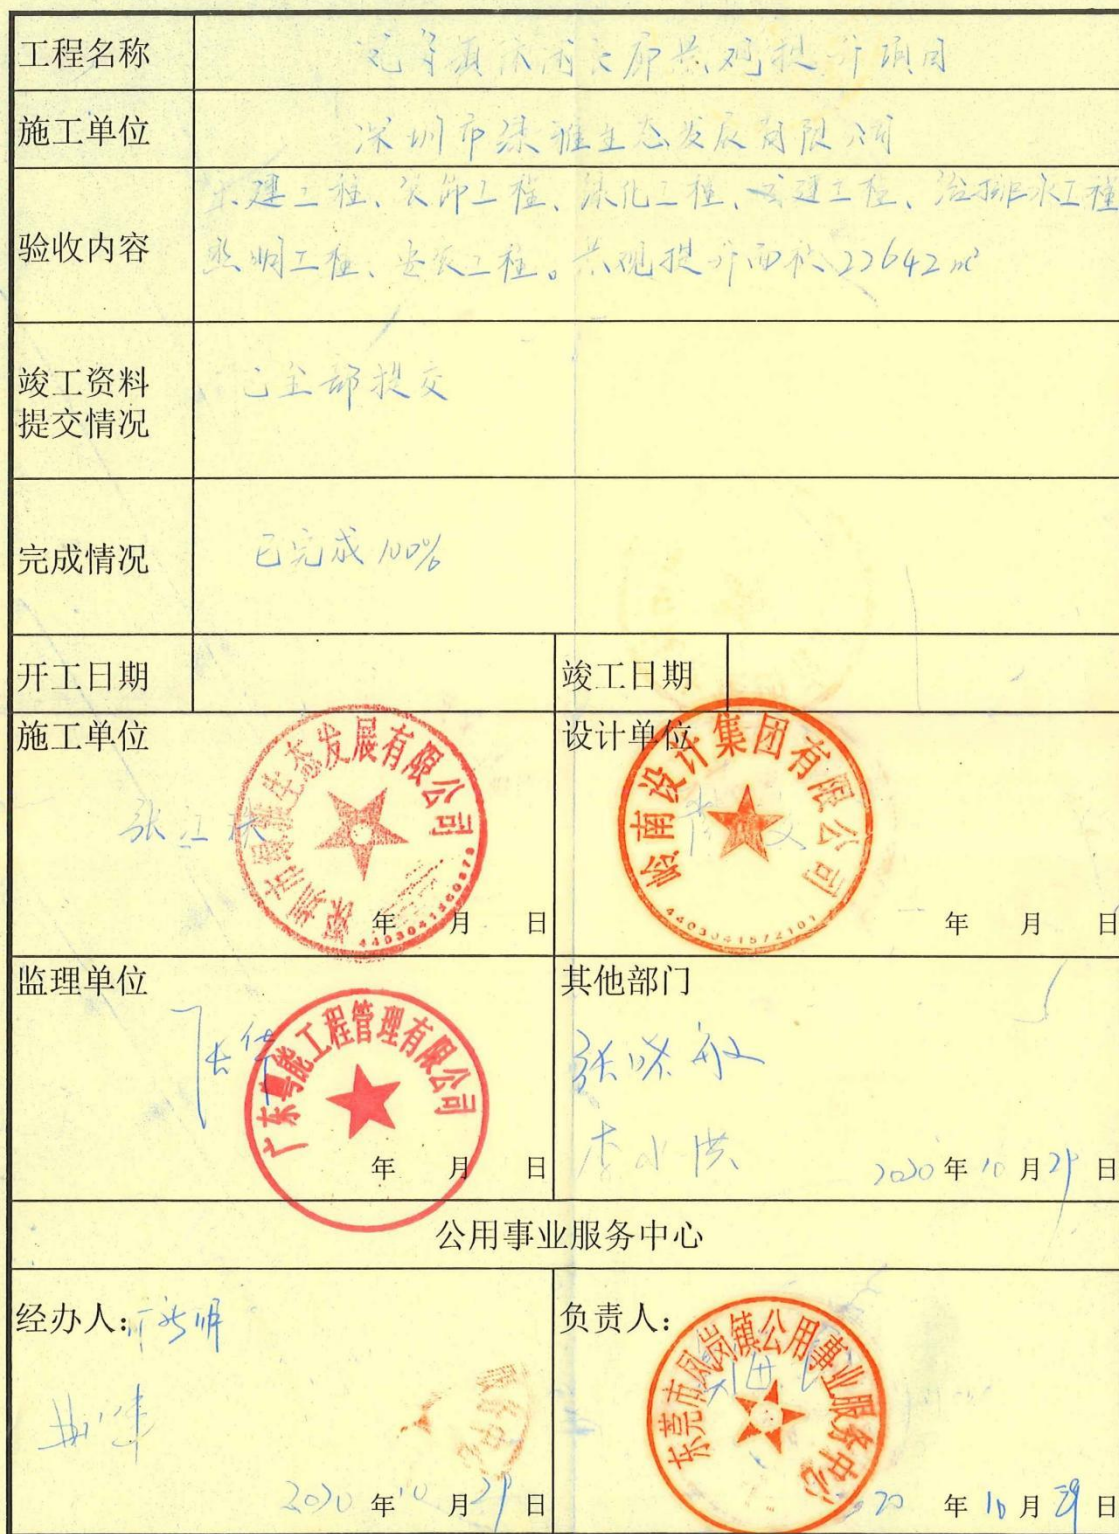 工程名称
提升项目
施工单位
深圳市绿雅生态发展有限公司
验收内容
土建工程、装饰工程、绿化工程、土建工程、给排水工程
照明工程、安装工程。景观提升面积22642㎡
竣工资料
提交情况
已全部提交
完成情况
已完成100%
开工日期
竣工日期
施工单位
生态发展有限公司
年 月 日
设计单位
岭南设计集团有限公司
4403041572101
年 月 日
监理单位
广东粤能工程管理有限公司
年 月 日
其他部门
张晓敏
李小洪
2020年10月29日
公用事业服务中心
经办人:
服务中心
2020年10月29日
负责人:
东莞市凤岗镇公用事业服务中心
20年10月29日